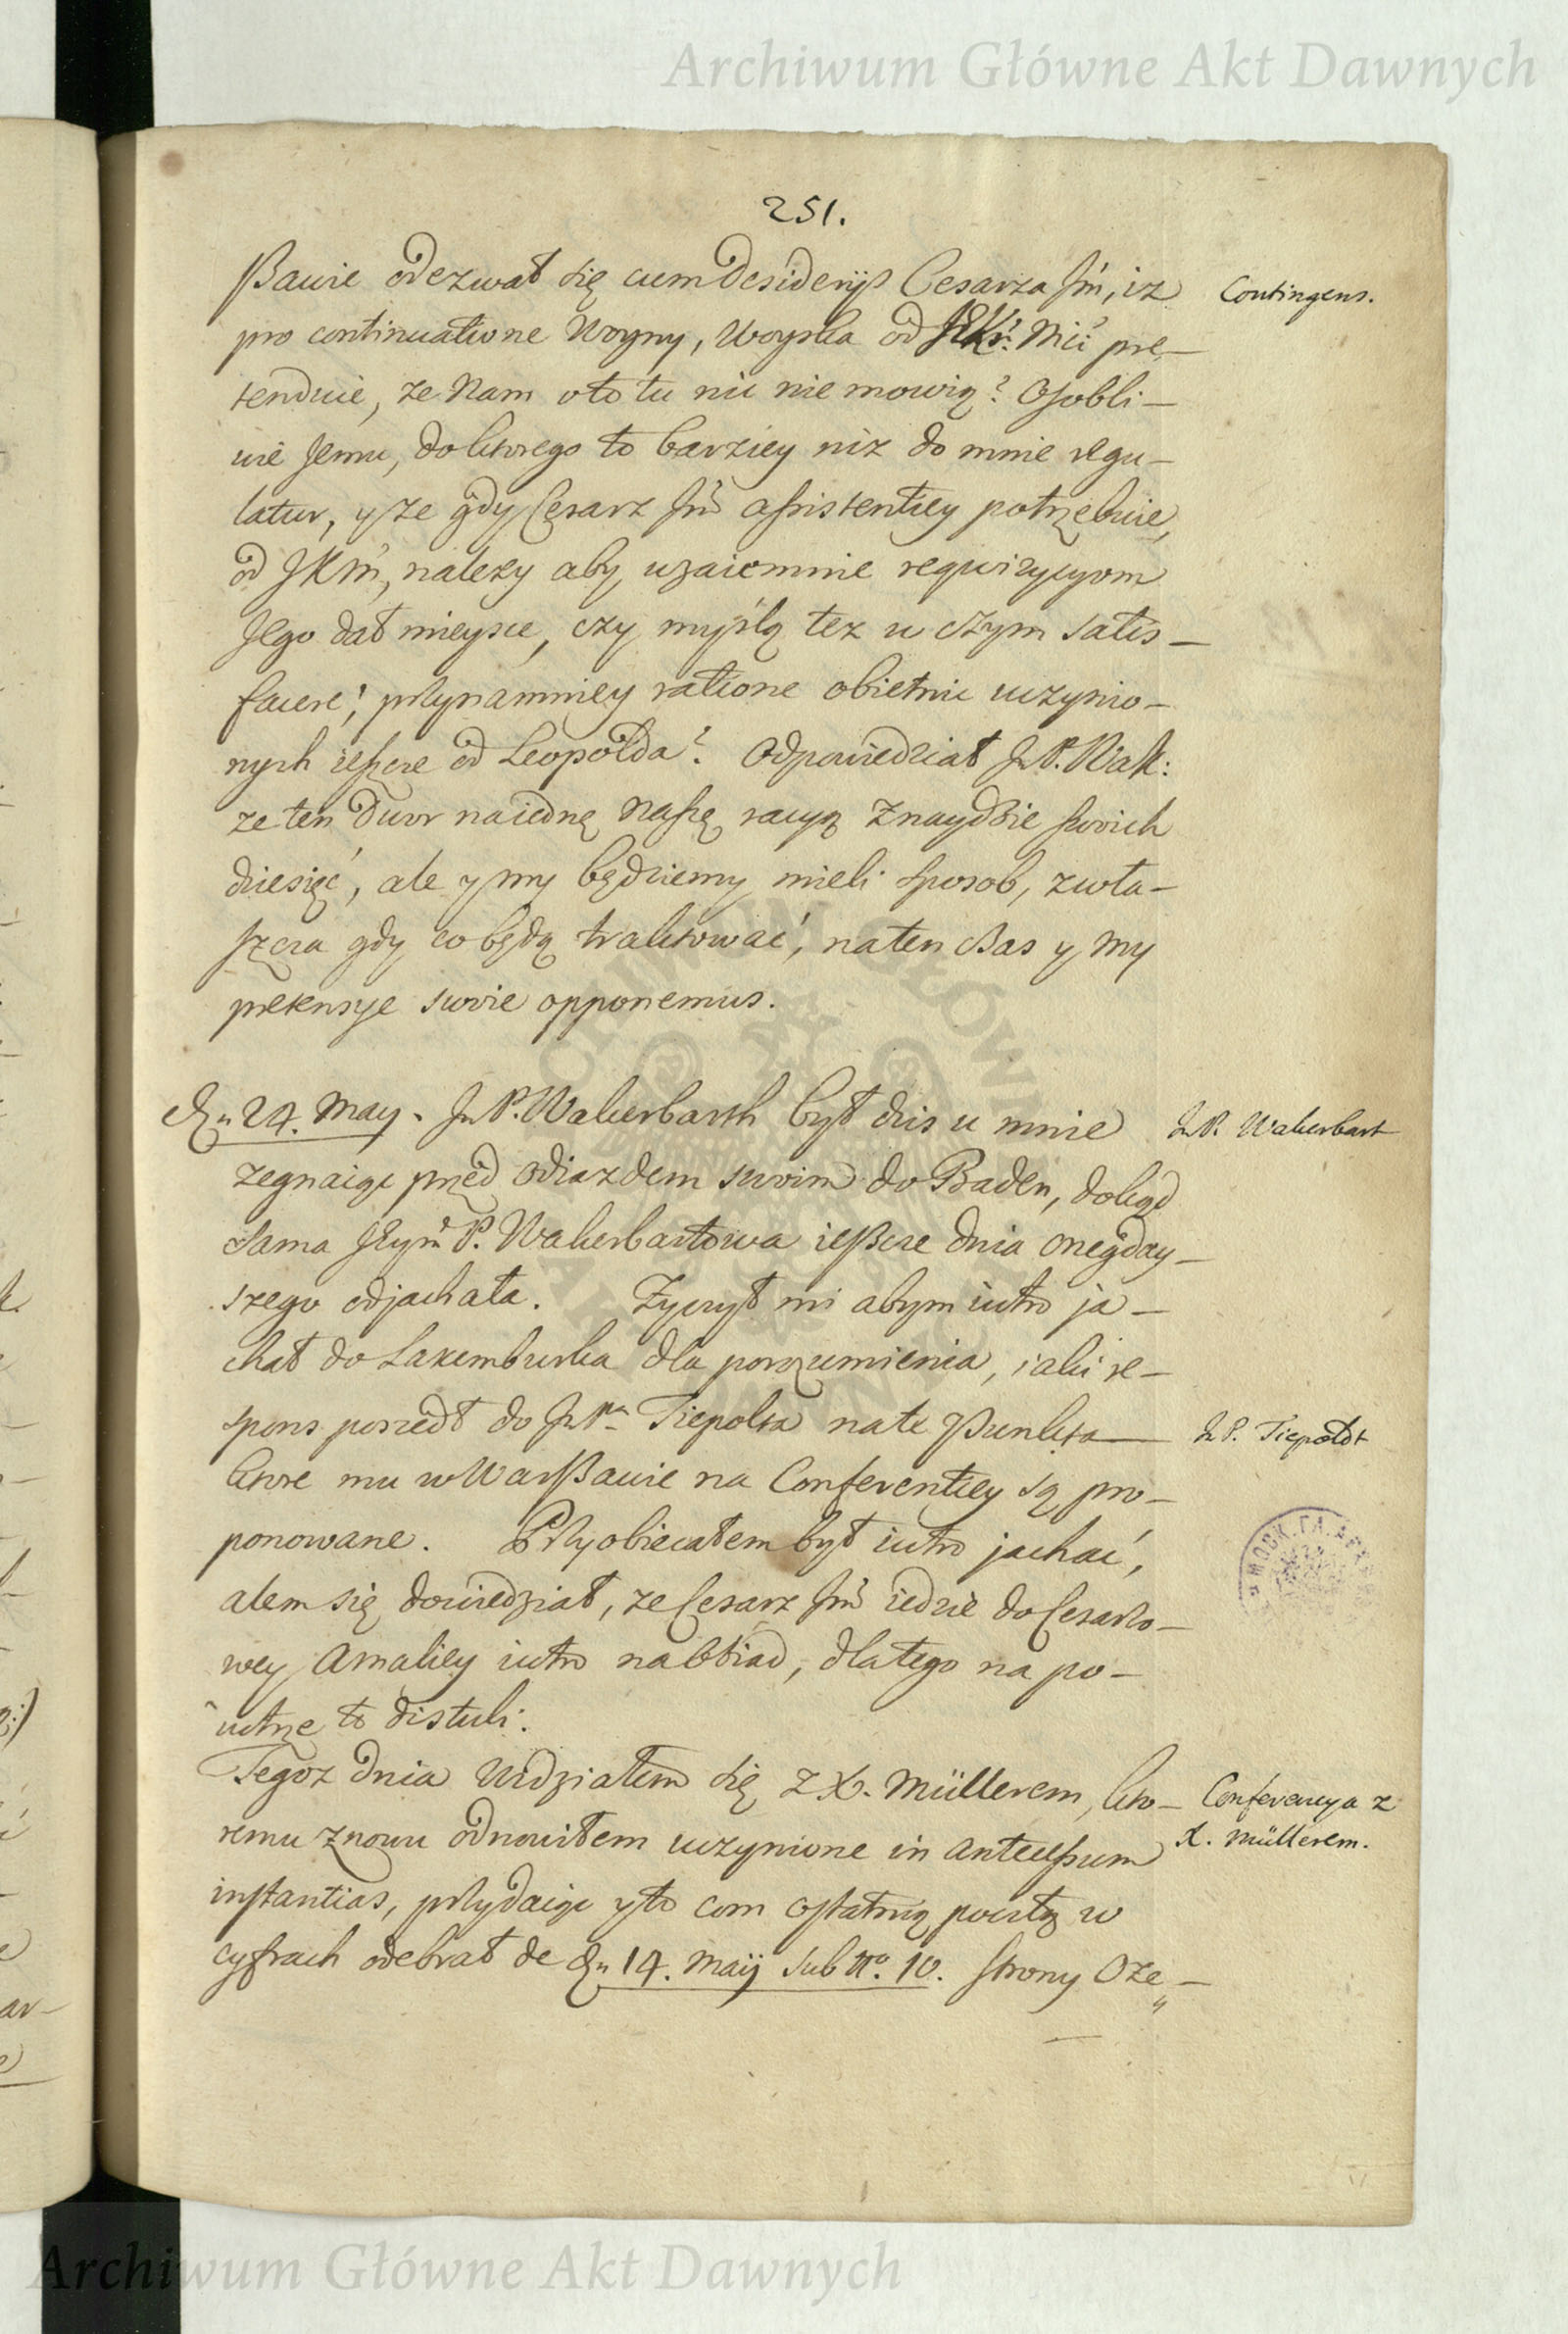 Archiwum Główne Akt Dawnych
251.
ßawie odezwał się cum desiderijs Cesarza Jm̃, iz
Contingens.
pro continuatione Woyny, Woyska od Mći pre-
tenduie, ze Nam oto tu nic nie mowią? Osobli-
wie Jemu, do ktorego to barziey niz do mnie regu-
latur, y ze gdy Cesarz Jm̃ assistentiey potrzebuie,
od JKM, nalezy aby wzaiemnie requizycyom
Jego dał mieysce, czy myslą tez w czym satis-
facere; przynamniey ratione obietnic uczynio-
nych ieszcze od Leopolda? Odpowiedział JP. Wak:
ze ten Dwor na iednę naszę racyą znaydzie swoich
dziesięć, ale y my będziemy mieli sposob, zwła-
szcza gdy co będą traktować, na ten czas y my
pretensye swoie opponemus.
24. May. JP. Wakerbarth był dzis u mnie
JP. Wakerbart
zegnaiąc przed odiazdem swoim do Baden, dokąd
sama Jeym P. Wakerbartowa ießcze dnia onegday-
szego odjachała. Zyczył mi abym iutro ja-
chał do Laxemburka dla porozumienia, iaki re-
spons poszedł do JPa Tiepolta na te Punkta
JP. Tiepoldt
ktore mu w Warßawie na Conferentiey są pro-
ponowane. Przyobiecałem był iutro jachać,
alem się dowiedział, ze Cesarz Jm̃ iedzie do Cesarzo-
wey Amaliey iutro na Obiad, dlatego na po-
iutrze to distuli.
Tegoz dnia Widziałem się z X. Müllerem, kto-
Conferencya z
X. Müllerem.
remu znowu odnowiłem uczynione in antecessum
instantias, przydaiąc y to com ostatnią pocztą w
cyfrach odebrał de 14. Maij sub Nº. 10. strony Oze-
Archiwum Główne Akt Dawnych